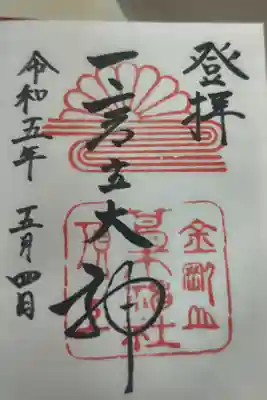 登拝
一言主大神
令和五年 五月四日
金剛山